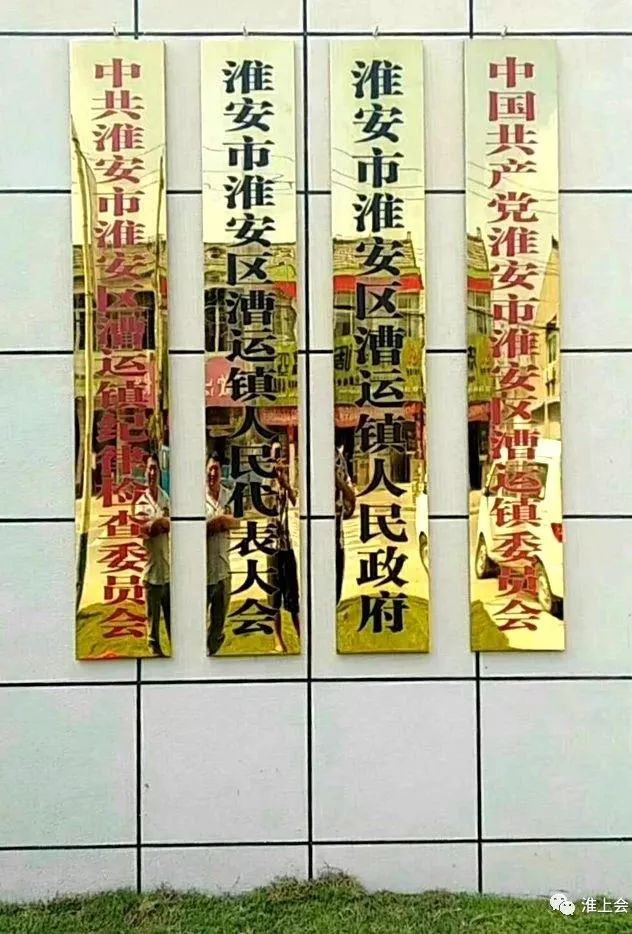 中共淮安市淮安区漕运镇纪律检查委员会
淮安市淮安区漕运镇人民代表大会
淮安市淮安区漕运镇人民政府
中国共产党淮安市淮安区漕运镇委员会
淮上会